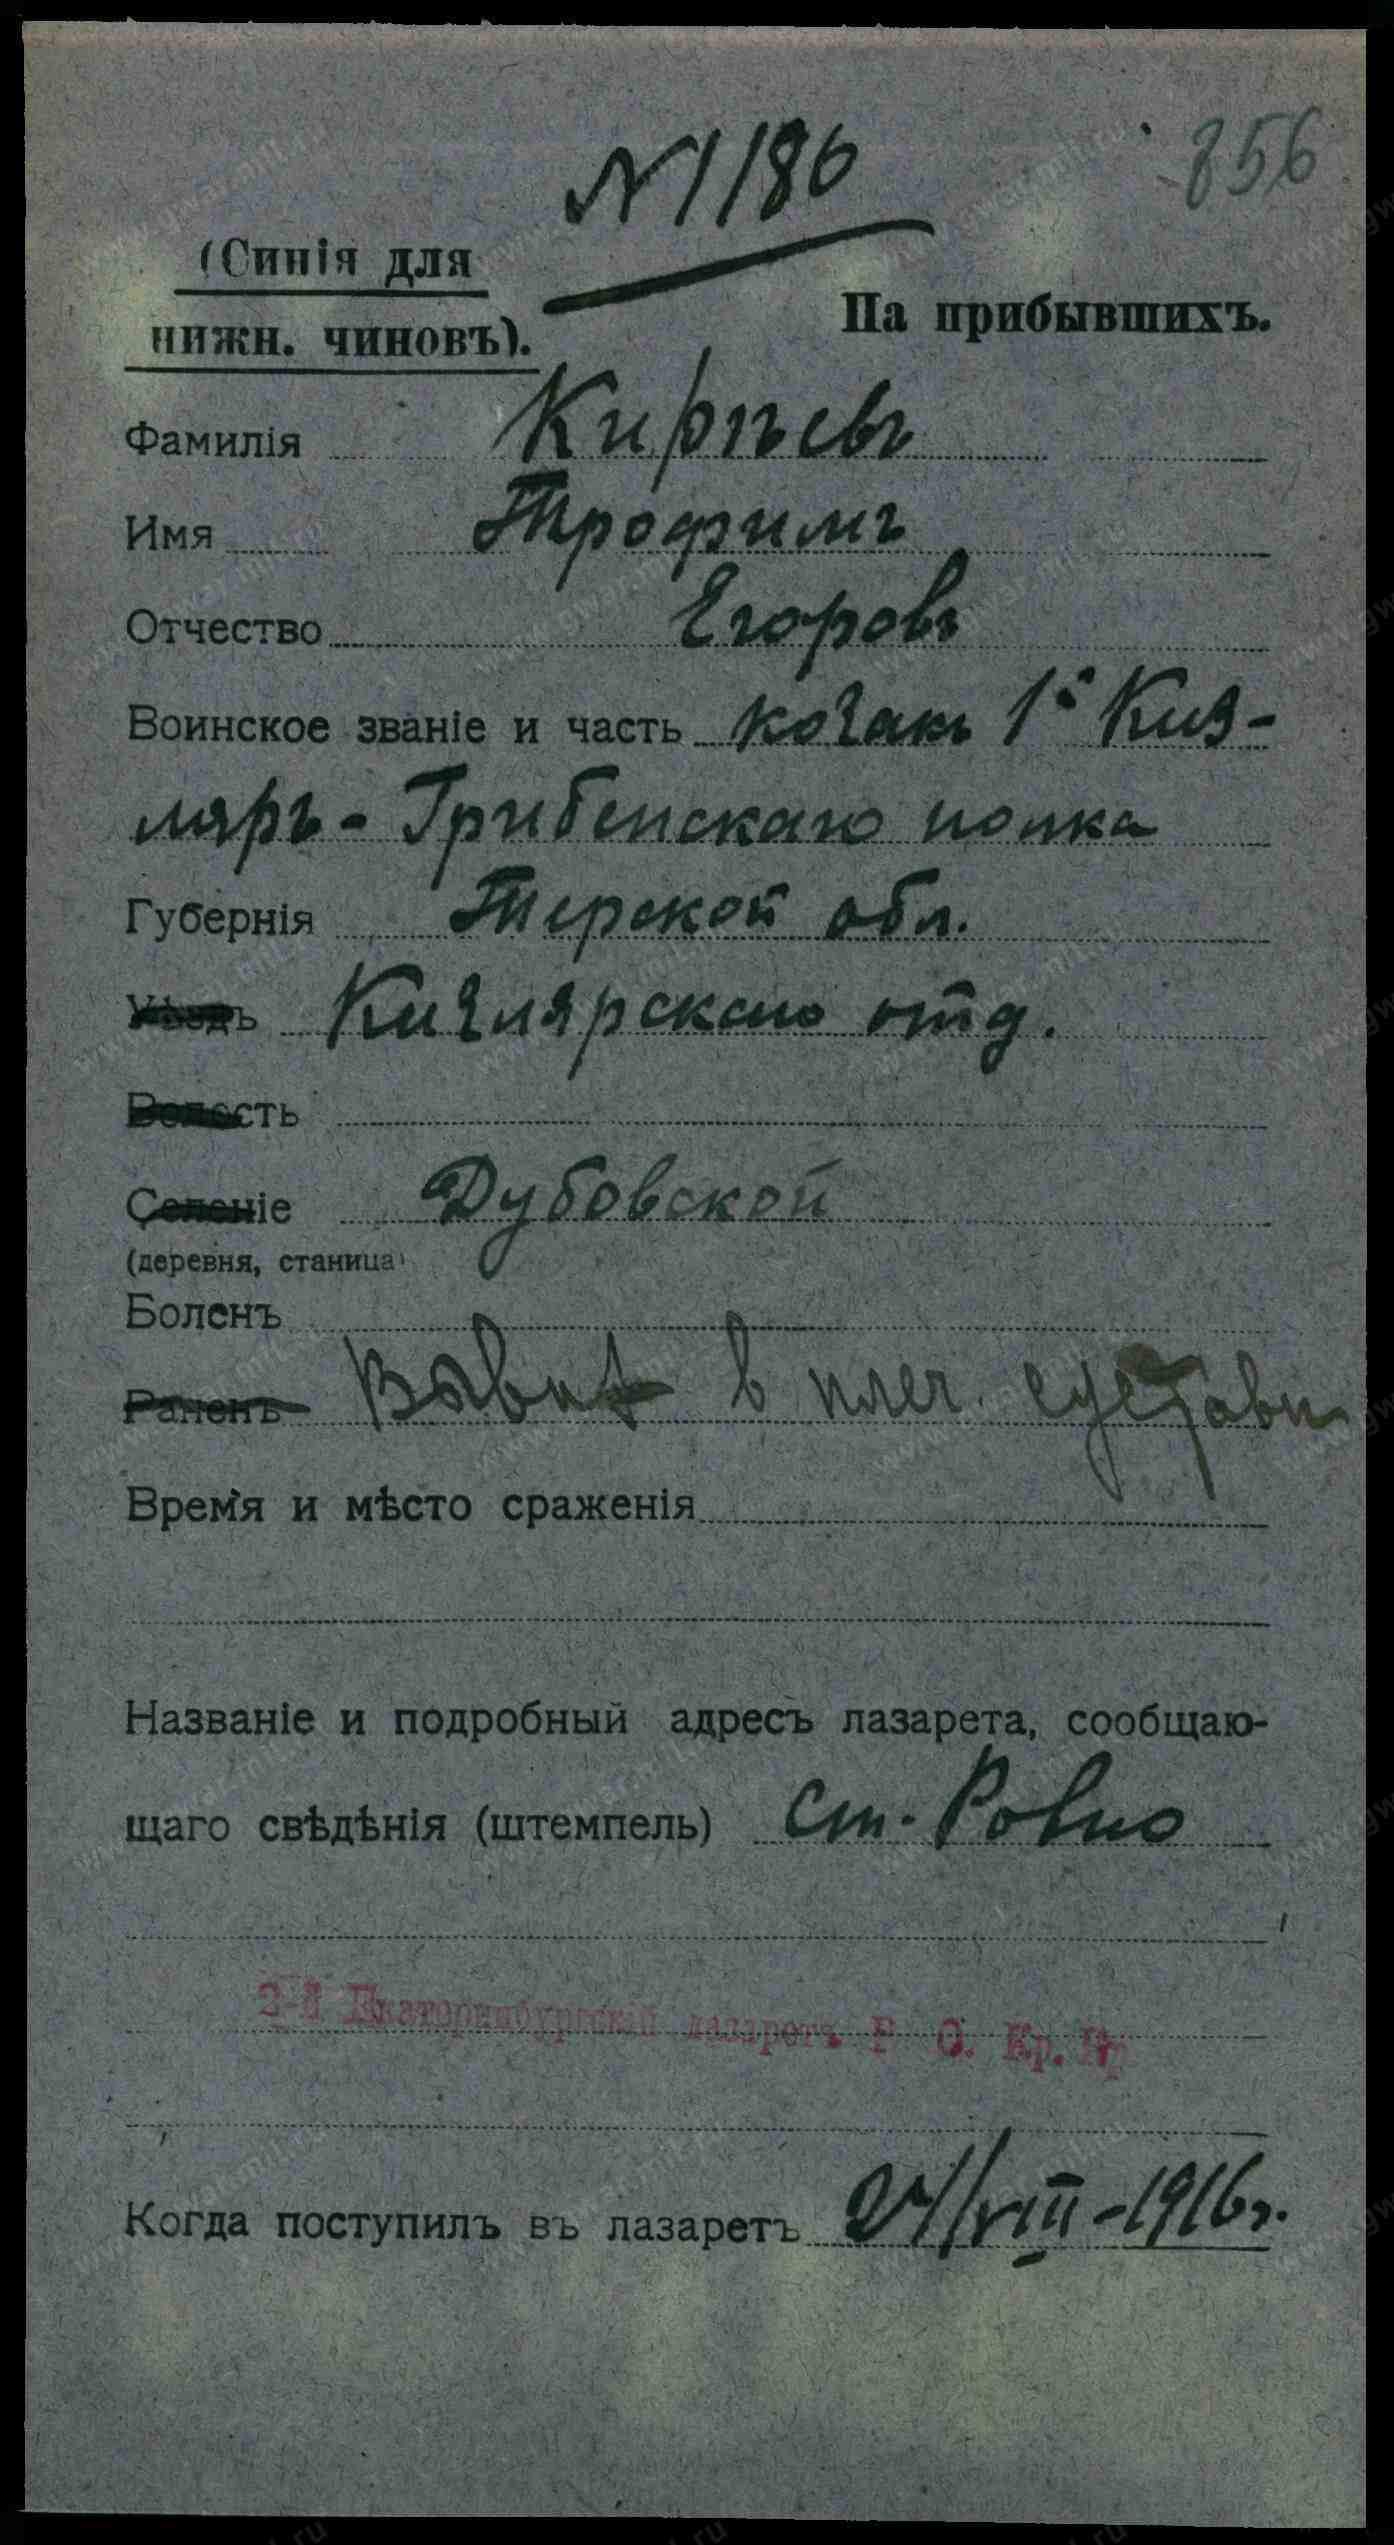 856
N 1186
(Синія для
нижн. чиновъ).
На прибывшихъ.
Фамилія Кирѣевъ
Имя Трофимъ
Отчество Егоровъ
Воинское званіе и часть козакъ 1го Киз-
ляръ-Гребенскаго полка
Губернія Терской обл.
Уѣздъ Кизлярскаго отд.
Волость
Селеніе Дубовской
(деревня, станица)
Боленъ
Раненъ Вывих в плеч. суставе
Время и мѣсто сраженія
Названіе и подробный адресъ лазарета, сообщаю-
щаго свѣдѣнія (штемпель) ст. Ровно
2-й Екатеринбургскій лазаретъ Р О. Кр. Кр
Когда поступилъ въ лазаретъ 24/VIII-1916 г.